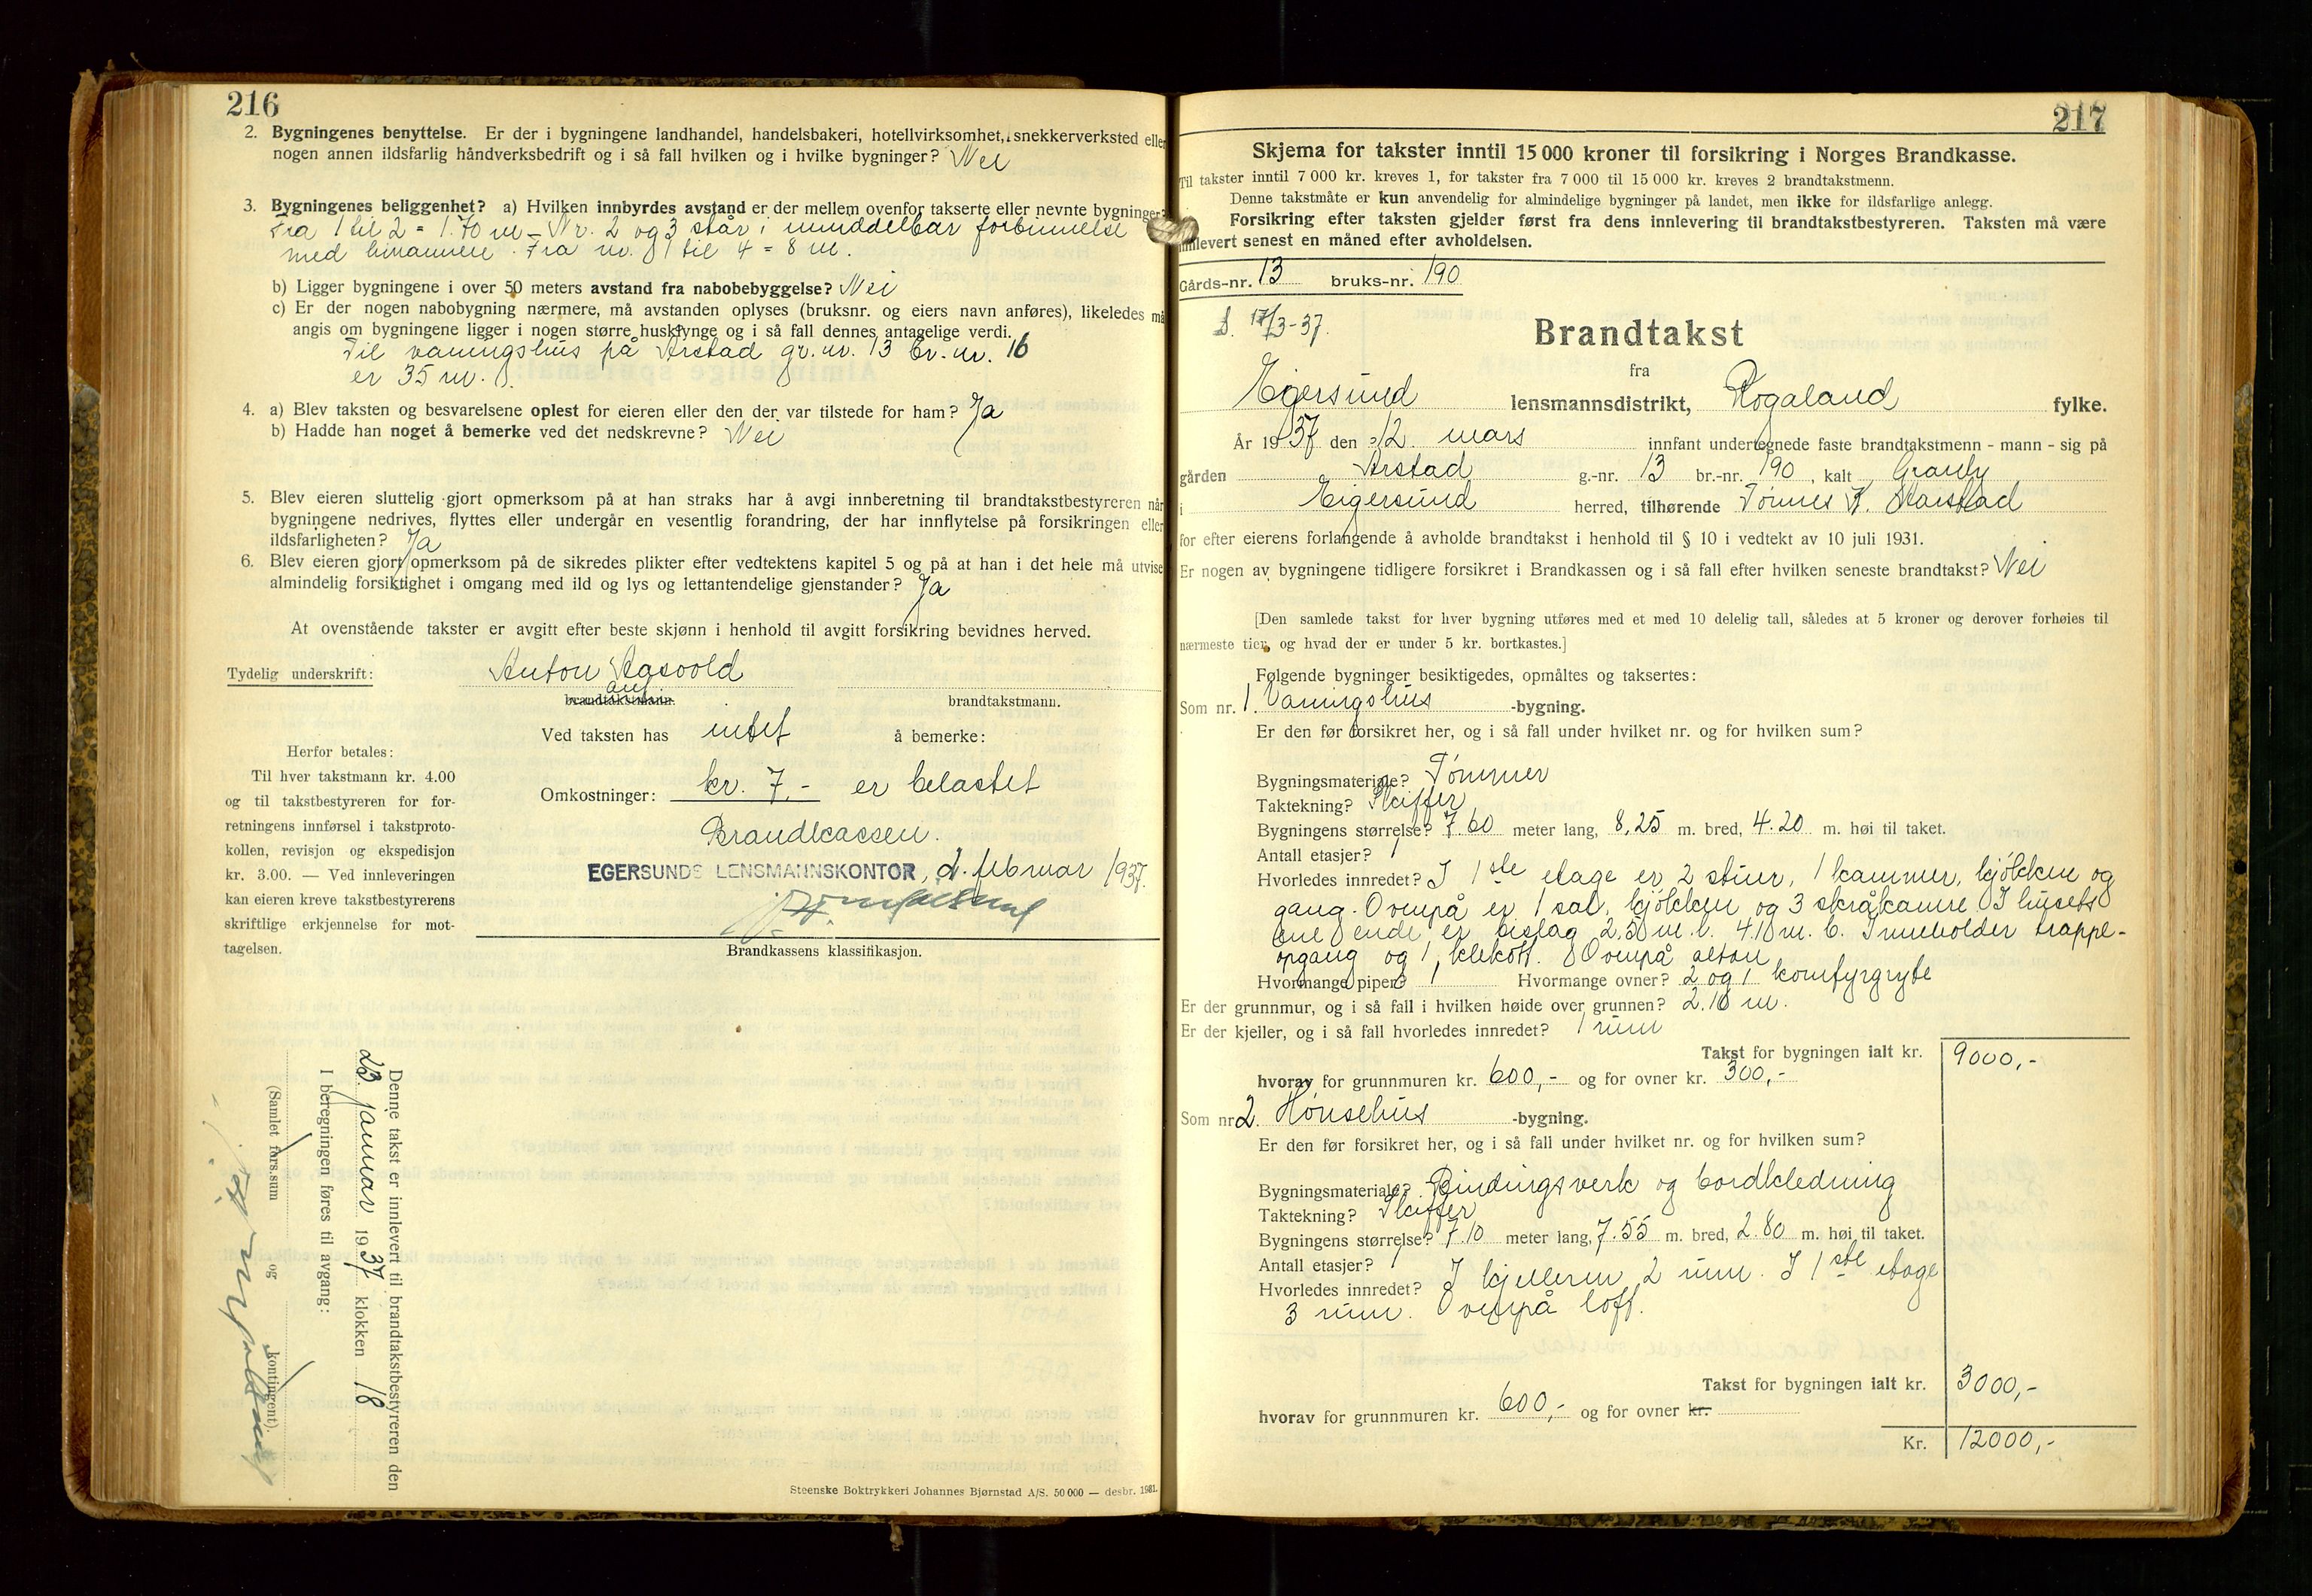 216
2. Bygningenes benyttelse. Er der i bygningene landhandel, handelsbakeri, hotellvirksomhet, snekkerverksted eller
nogen annen ildsfarlig håndverksbedrift og i så fall hvilken og i hvilke bygninger? Nei
3. Bygningenes beliggenhet? a) Hvilken innbyrdes avstand er der mellem ovenfor takserte eller nevnte bygninger?
Fra 1 til 2 = 1.70 m - Nr. 2 og 3 står i umiddelbar forbinnelse
med hinannen. Fra nr. 1 til 4 = 8 m.
b) Ligger bygningene i over 50 meters avstand fra nabobebyggelse? Nei
c) Er der nogen nabobygning nærmere, må avstanden oplyses (bruksnr. og eiers navn anføres), likeledes må
angis om bygningene ligger i nogen større husklynge og i så fall dennes antagelige verdi.
Til vaningshus på Årstad gr. nr. 13 br. nr. 16
er 35 m.
4. a) Blev taksten og besvarelsene oplest for eieren eller den der var tilstede for ham? Ja
b) Hadde han noget å bemerke ved det nedskrevne? Nei
5. Blev eieren sluttelig gjort opmerksom på at han straks har å avgi innberetning til brandtakstbestyreren når
bygningene nedrives, flyttes eller undergår en vesentlig forandring, der har innflytelse på forsikringen eller
ildsfarligheten? Ja
6. Blev eieren gjort opmerksom på de sikredes plikter efter vedtektens kapitel 5 og på at han i det hele må utvise
almindelig forsiktighet i omgang med ild og lys og lettantendelige gjenstander? Ja
At ovenstående takster er avgitt efter beste skjønn i henhold til avgitt forsikring bevidnes herved.
Tydelig underskrift: Anton Aasvold
brandtakstmann. brandtakstmann.
Ved taksten has intet å bemerke:
Herfor betales:
Til hver takstmann kr. 4.00
og til takstbestyreren for for-
retningens innførsel i takstproto-
kollen, revisjon og ekspedisjon
kr. 3.00. — Ved innleveringen
kan eieren kreve takstbestyrerens
skriftlige erkjennelse for mot-
tagelsen.
Omkostninger: kr. 7,- er belastet
Brandkassen.
EGERSUNDS LENSMANNSKONTOR, d. februar 1937.
Brandkassens klassifikasjon.
Denne takst er innlevert til brandtakstbestyreren den
23. januar 1937 klokken 18
I beregningen føres til avgang:
(Samlet fors.sum og kontingent).
Steenske Boktrykkeri Johannes Bjørnstad A/S. 50 000 — desbr. 1931.
217
Skjema for takster inntil 15 000 kroner til forsikring i Norges Brandkasse.
Til takster inntil 7 000 kr. kreves 1, for takster fra 7 000 til 15 000 kr. kreves 2 brandtakstmenn.
Denne takstmåte er kun anvendelig for almindelige bygninger på landet, men ikke for ildsfarlige anlegg.
Forsikring efter taksten gjelder først fra dens innlevering til brandtakstbestyreren. Taksten må være
innlevert senest en måned efter avholdelsen.
Gårds-nr. 13 bruks-nr. 190
17/3-37.
Brandtakst
fra
Eigersund lensmannsdistrikt, Rogaland fylke.
År 1937 den 12. mars innfant undertegnede faste brandtakstmenn - mann - sig på
gården Årstad g.-nr. 13 br.-nr. 190, kalt Granly
i Eigersund herred, tilhørende Tønnes K.
for efter eierens forlangende å avholde brandtakst i henhold til § 10 i vedtekt av 10 juli 1931.
Er nogen av bygningene tidligere forsikret i Brandkassen og i så fall efter hvilken seneste brandtakst? Nei
[Den samlede takst for hver bygning utføres med et med 10 delelig tall, således at 5 kroner og derover forhøies til
nærmeste tier, og hvad der er under 5 kr. bortkastes.]
Følgende bygninger besiktigedes, opmåltes og taksertes:
Som nr. 1. Vaningshus -bygning.
Er den før forsikret her, og i så fall under hvilket nr. og for hvilken sum?
Bygningsmateriale? Tømmer
Taktekning? Skiffer
Bygningens størrelse? 7.60 meter lang, 8,25 m. bred, 4.20 m. høi til taket.
Antall etasjer? 1
Hvorledes innredet? I 1ste etage er 2 stuer, 1 kammer, kjøkken og
gang. Ovenpå er 1 sal, kjøkken og 3 skråkamre. I husets
ene ende er bislag 2,50 m. l. 4.10 m. b. Inneholder trappe-
opgang og 1 klekott. Ovenpå altan
Hvormange piper? 1 Hvormange ovner? 2 og 1 komfyrgryte
Er der grunnmur, og i så fall i hvilken høide over grunnen? 2.10 m.
Er der kjeller, og i så fall hvorledes innredet? 1 rum
Takst for bygningen ialt kr. 9000,-
hvorav for grunnmuren kr. 600,- og for ovner kr. 300,-
Som nr. 2. Hønsehus -bygning.
Er den før forsikret her, og i så fall under hvilket nr. og for hvilken sum?
Bygningsmateriale? Bindingsverk og bordkledning
Taktekning? Skiffer
Bygningens størrelse? 7.10 meter lang, 7.55 m. bred, 2.80 m. høi til taket.
Antall etasjer? 1
Hvorledes innredet? I kjelleren 2 rum. I 1ste etage
3 rum. Ovenpå loft.
Takst for bygningen ialt kr. 3000,-
hvorav for grunnmuren kr. 600,- og for ovner kr.
Kr. 12000,-